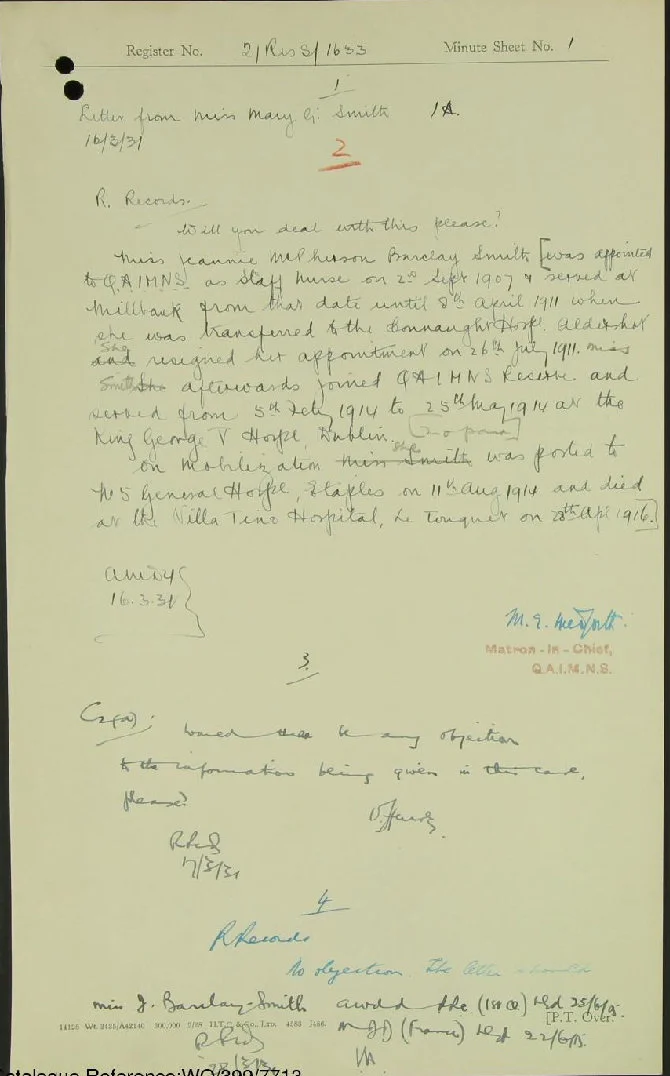 Register No. 2/Res S/1633 Minute Sheet No. 1
1
Letter from Miss Mary G. Smith 1A.
16/3/31
2
R. Records.
Will you deal with this please?
Miss Jeannie McPherson Barclay Smith [was appointed
to Q.A.I.M.N.S. as Staff Nurse on 2nd Sept 1907 & served at
Millbank from that date until 8th April 1911 when
she was transferred to the Connaught Hosp. Aldershot
She
and resigned her appointment on 26th July 1911. Miss
Smith She afterwards joined QAIMNS Reserve and
served from 5th Feby 1914 to 25th May 1914 at the
King George V Hospl, Dublin. [no para]
she
On Mobilization Miss Smith was posted to
No 5 General Hospl, Etaples on 11th Aug 1914 and died
at the Villa Tino Hospital, Le Touquet on 28th Apl 1916.]
AMD4
16.3.31
Matron-in-Chief,
Q.A.I.M.N.S.
3
C2(a):
Would there be any objection
to the information being given in this case,
please?
R Rds
17/3/31
4
R Records
No objection. The letter should
Miss J. Barclay-Smith awdd the (1st Cl)
[P.T. Over.
(France)
R Rds
Catalogue Reference:WO/399/7713